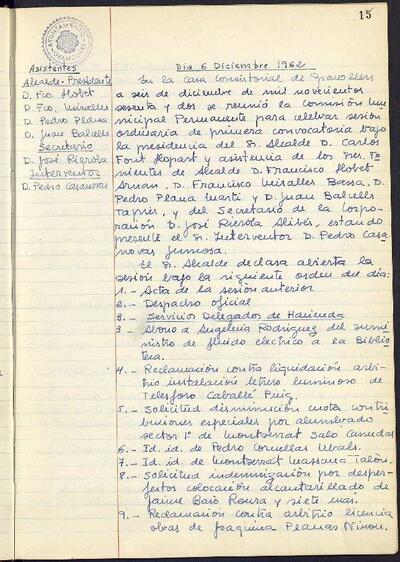 15
AYUNTAMIENTO
Asistentes
Alcalde-Presidente
D. Fco. Llobet
D. Fco. Miralles
D. Pedro Plana
D. Juan Balcells
Secretario
D. José Rierola
Interventor
D. Pedro Casanovas
Dia 6 Diciembre 1962
En la Casa Consistorial de Granollers
a seis de diciembre de mil novecientos
sesenta y dos se reunió la Comisión Mu-
nicipal Permanente para celebrar sesión
ordinaria de primera convocatoria bajo
la presidencia del Sr. Alcalde D. Carlos
Font Llopart y asistencia de los Sres. Te-
nientes de Alcalde D. Francisco Llobet
Arnan, D. Francisco Miralles Bassa, D.
Pedro Plana Martí y D. Juan Balcells
Tapies, y del Secretario de la Corpo-
ración D. José Rierola Alibés, estando
presente el Sr. Interventor D. Pedro Casa
novas
El Sr. Alcalde declara abierta la
sesión bajo la siguiente orden del dia:
1.- Acta de la sesión anterior
2.- Despacho oficial
3.- Servicios Delegados de Hacienda
3 - Abono a Angelina Rodriguez del sumi-
nistro de fluido electrico a la Biblio-
teca.
4.- Reclamación contra liquidación arbi-
trio instalación letrero luminoso de
Telesforo Caballé Puig.
5.- Solicitud disminución cuota contri-
buciones especiales por alumbrado
sector 1º de Montserrat Saló Canudas
6.- Id. id. de Pedro Cornellas Ubals.
7.- Id. id. de Montserrat Massana Talón.
8.- Solicitud indemnización por desper-
fectos colocación alcantarillado de
Jaime Baró Roura y siete mas.
9.- Reclamación contra arbitrio licencia
obras de Joaquina Planas Ninou.